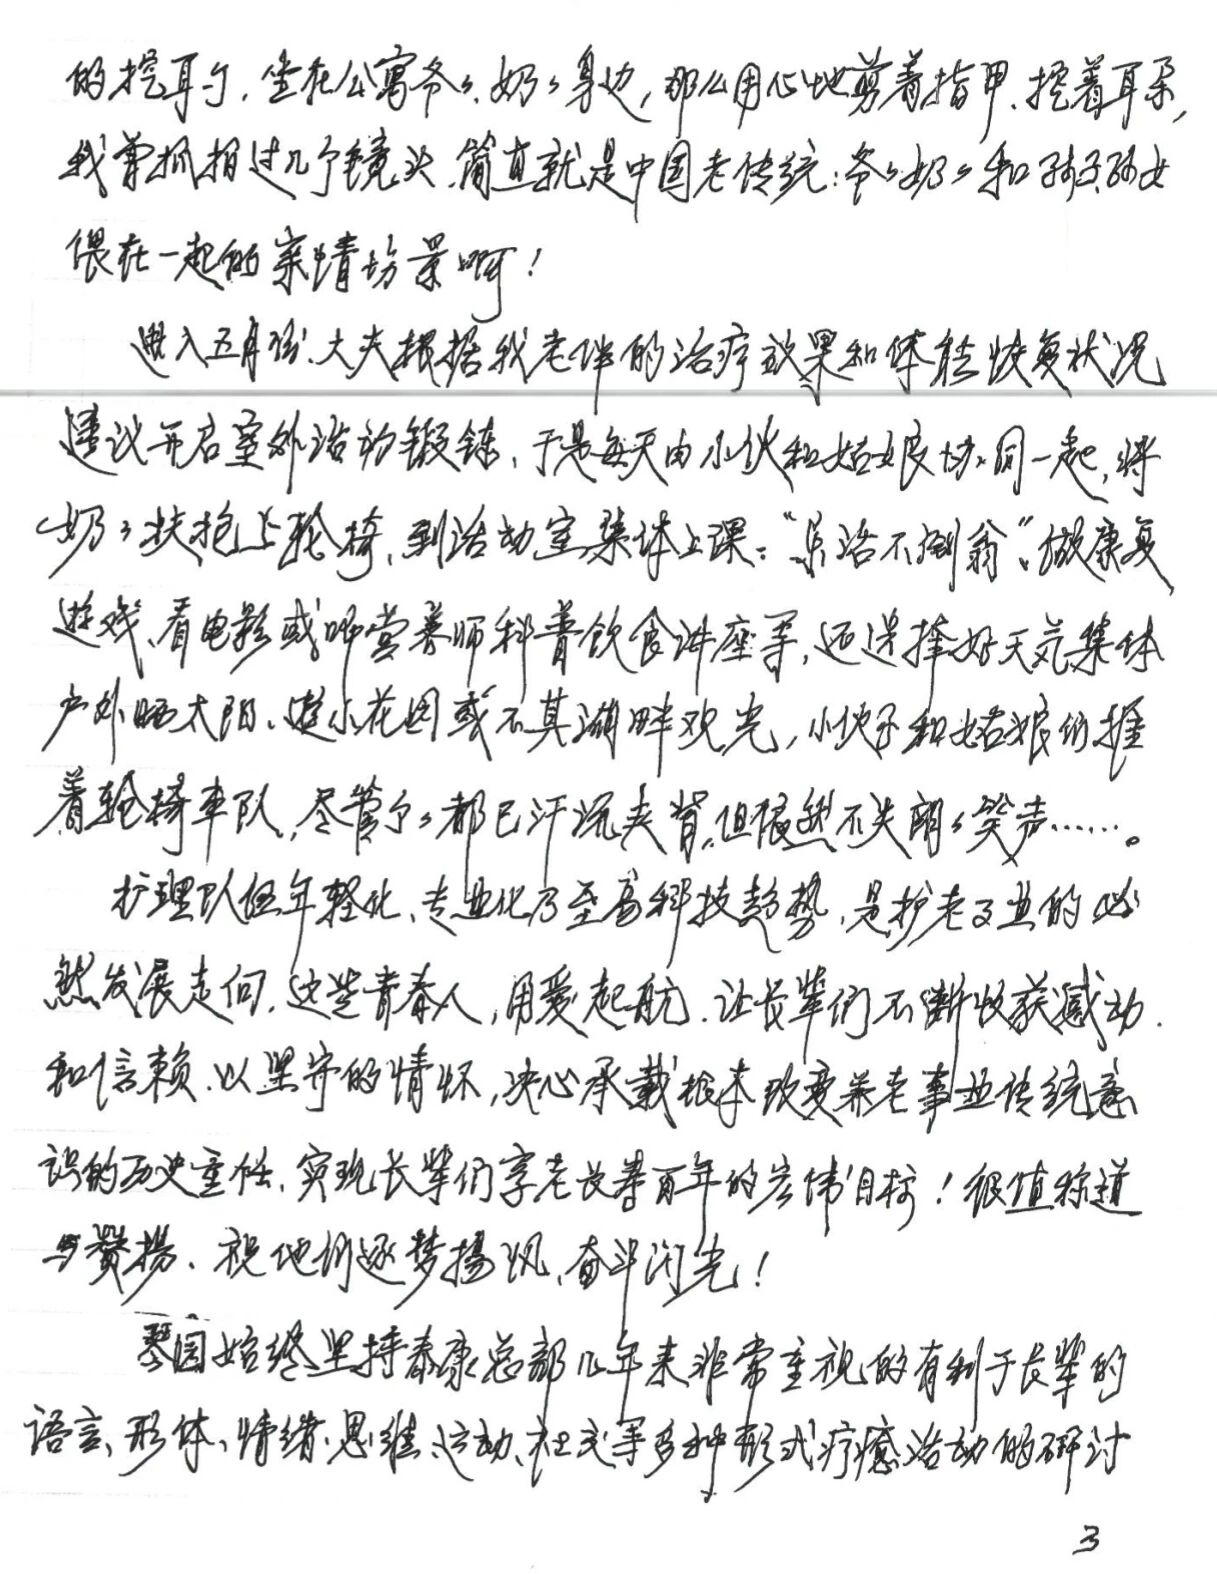 的挖耳勺，坐在公寓爷々、奶々身边，那么用心地剪着指甲、挖着耳朵，
我曾抓拍过几个镜头，简直就是中国老传统：爷々奶々和孙子孙女
偎在一起的亲情场景啊！
进入五月份、大夫根据我老伴的治疗效果和体能恢复状况
建议开启室外活动锻炼，于是每天由小伙和姑娘协同一起，将
奶々扶抱上轮椅，到活动室集体上课：“乐活不倒翁”、做康复
游戏、看电影或听营养师科普饮食讲座等，还选择好天气集体
户外晒太阳、逛小花园或不其湖畔观光，小伙子和姑娘们推
着轮椅车队，尽管个々都已汗流夹背，但依然不失朗々笑声……。
护理队伍年轻化、专业化乃至高科技趋势，是护老事业的必
然发展走向，这些青春人，用爱起航，让长辈们不断收获感动
和信赖，以坚守的情怀，决心承载根本改变养老事业传统意
识的历史重任，实现长辈们享老长寿百年的宏伟目标！很值称道
与赞扬，祝他们逐梦扬帆，奋斗闪光！
琴园始终坚持泰康总部几年来非常重视的有利于长辈的
语言、形体、情绪、思维、运动、社交等多种形式疗愈活动的研讨
3